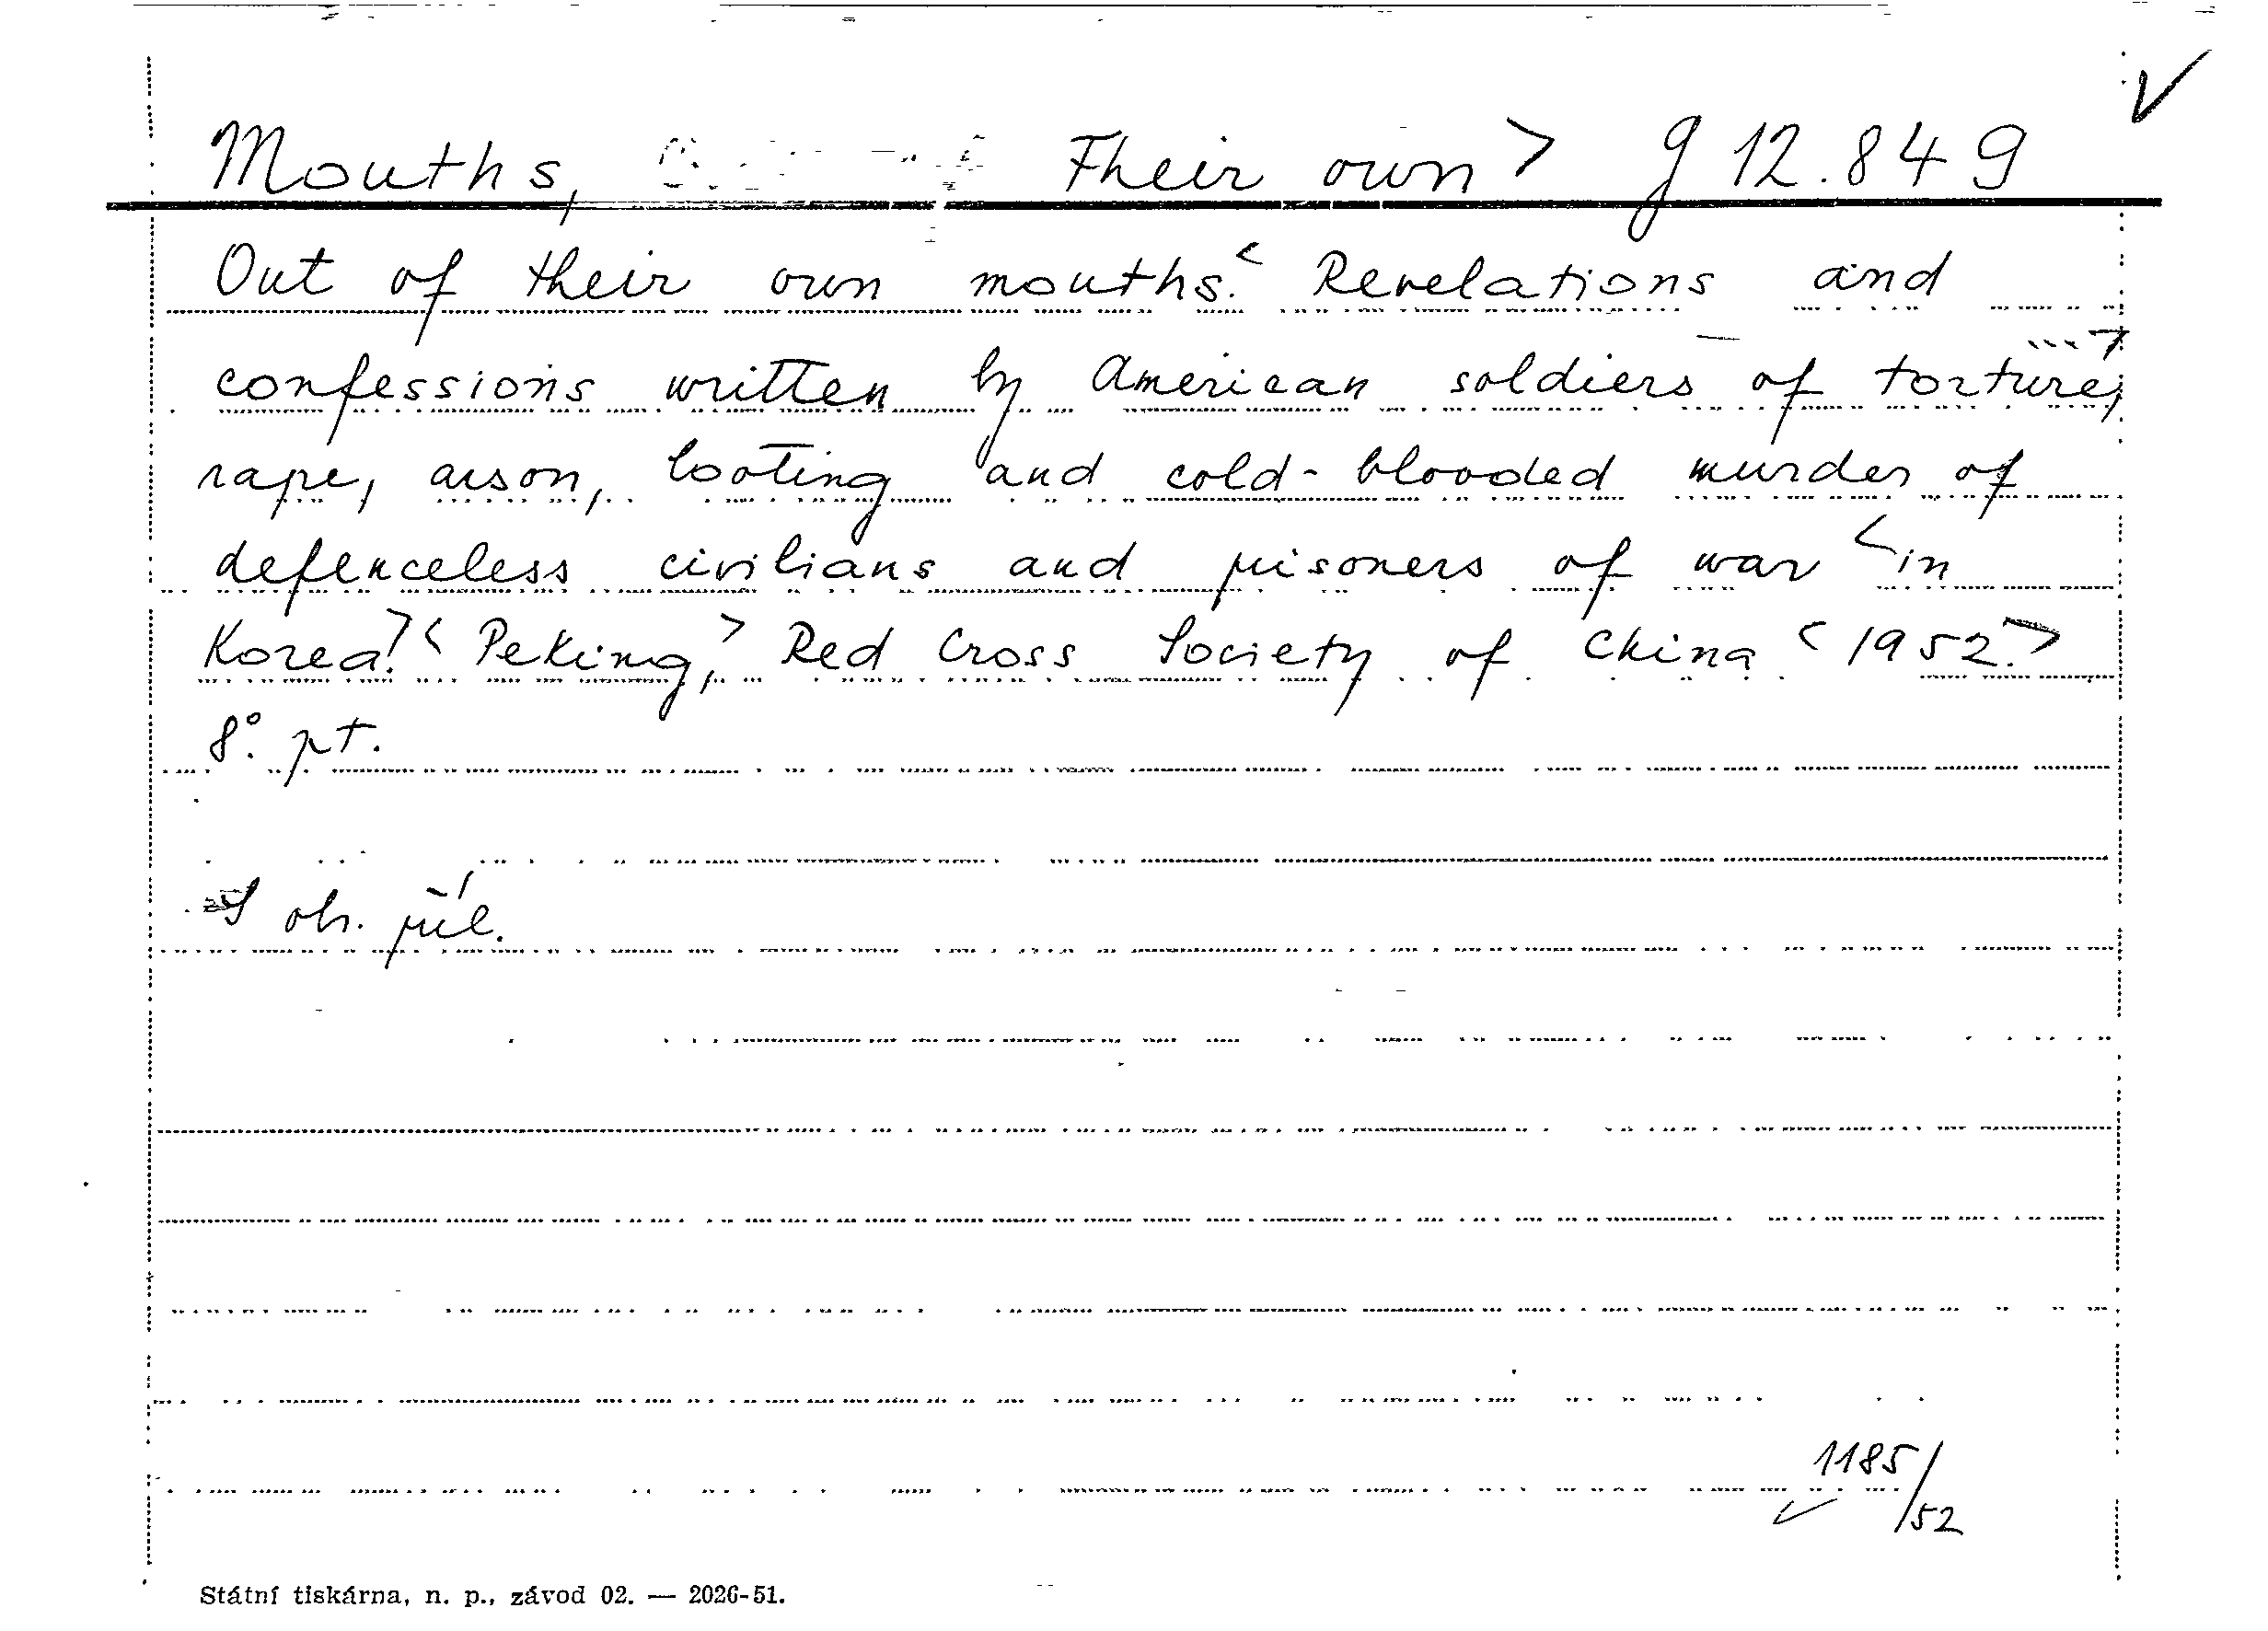 Mouths, Their own > g 12.849
Out of their own mouths.< Revelations and
confessions written by American soldiers of torture,
rape, arson, looting and cold-blooded murder of
defenceless civilians and prisoners of war <in
Korea.>< Peking,> Red Cross Society of China <1952.>
8°. pt.
S obr. příl.
1185/
52
Státní tiskárna, n. p., závod 02. — 2026-51.